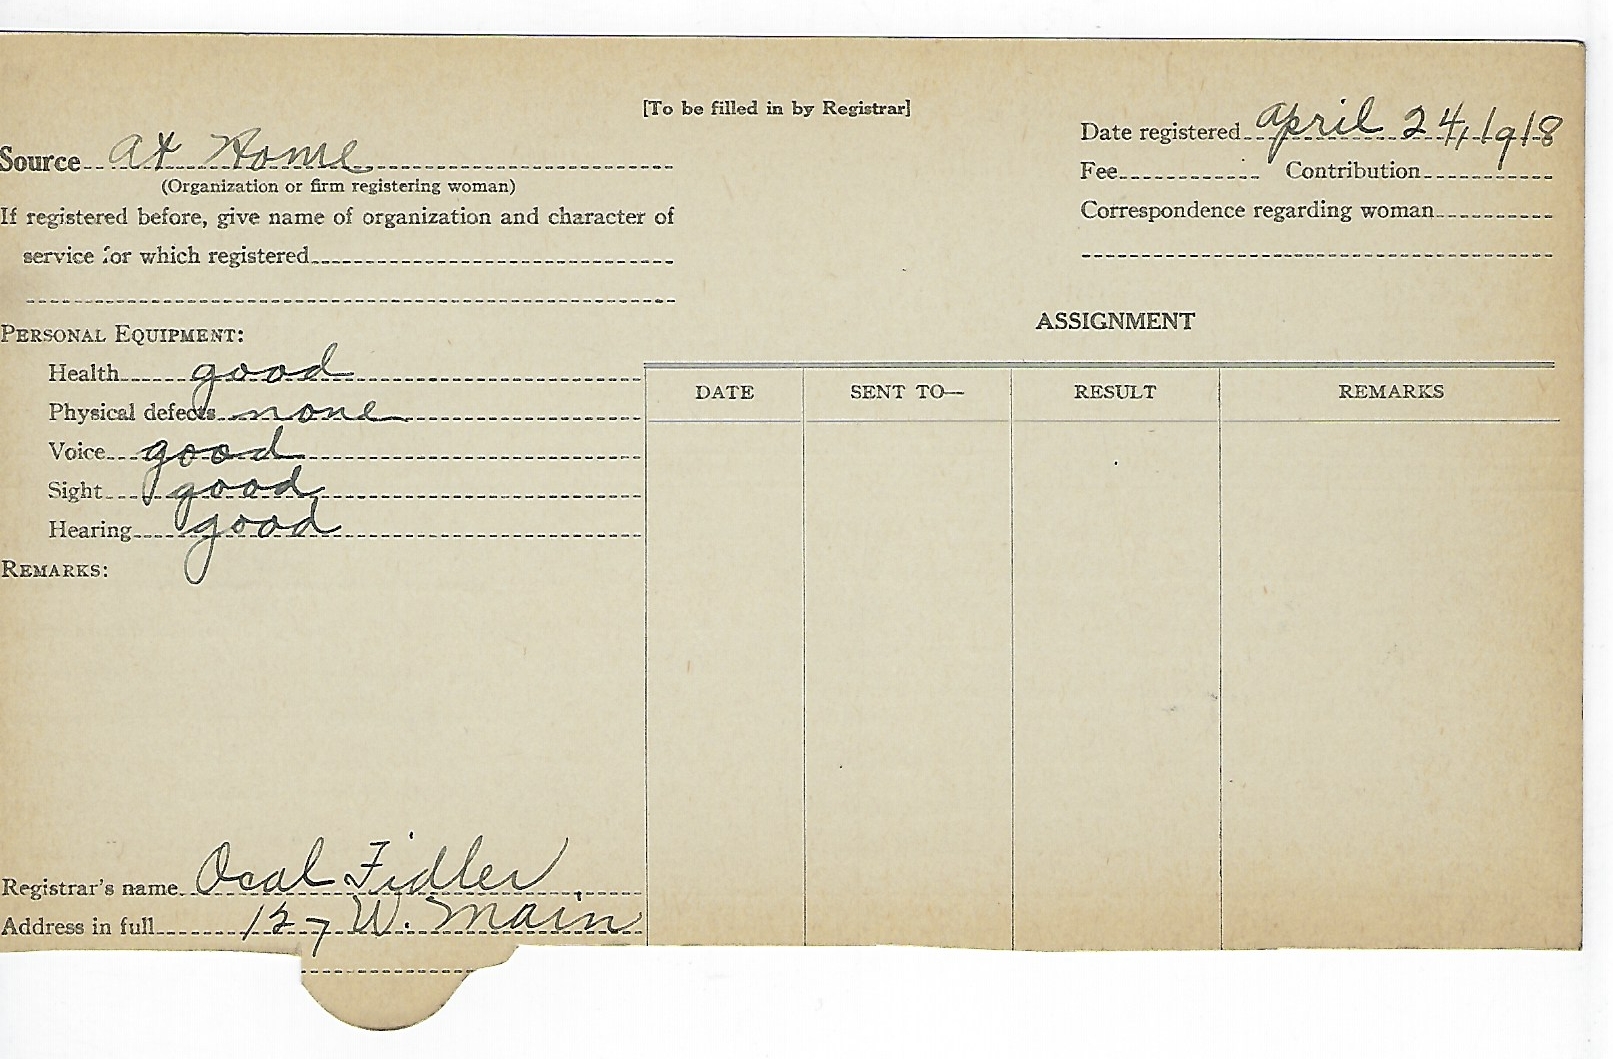 [To be filled in by Registrar]
Date registered April 24, 1918
Source At Home
(Organization or firm registering woman)
Fee Contribution
If registered before, give name of organization and character of
Correspondence regarding woman
service for which registered
PERSONAL EQUIPMENT:
ASSIGNMENT
Health good
DATE SENT TO— RESULT REMARKS
Physical defects none
Voice good
Sight good
Hearing good
REMARKS:
Registrar's name Ocal Fidler
Address in full 127 W. Main